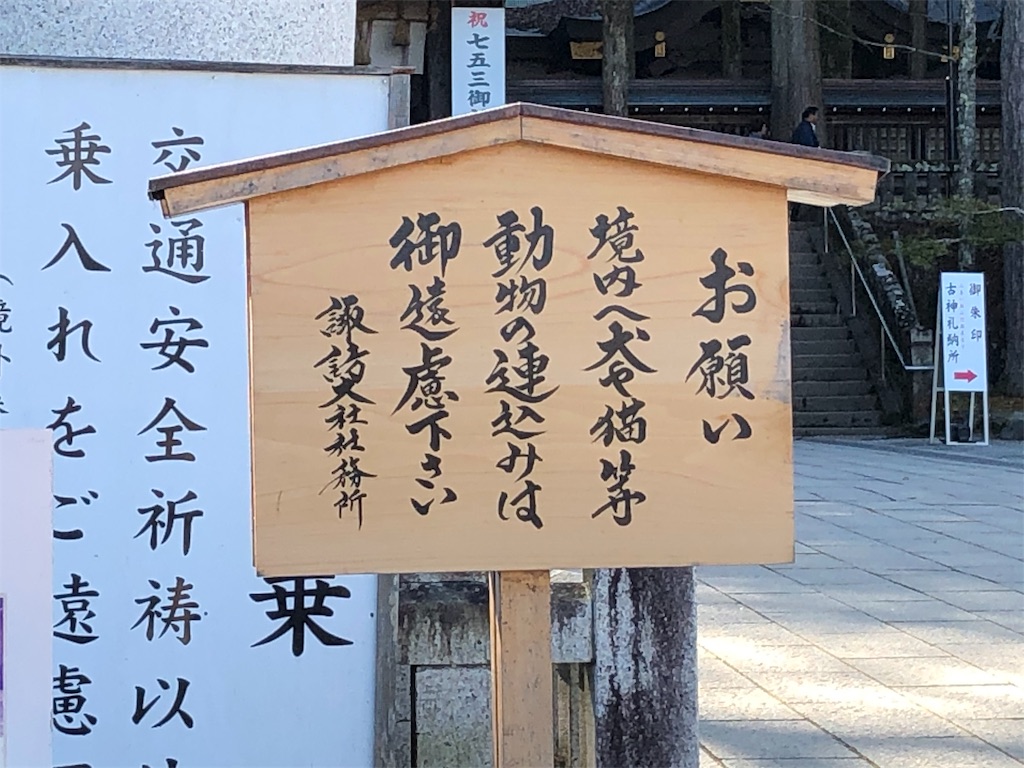 お願い
境内へ犬や猫等
動物の連込みは
御遠慮下さい
諏訪大社社務所
祝
七五三御
御朱印
古神札納所
交通安全祈祷以
乗入れをご遠慮
乗